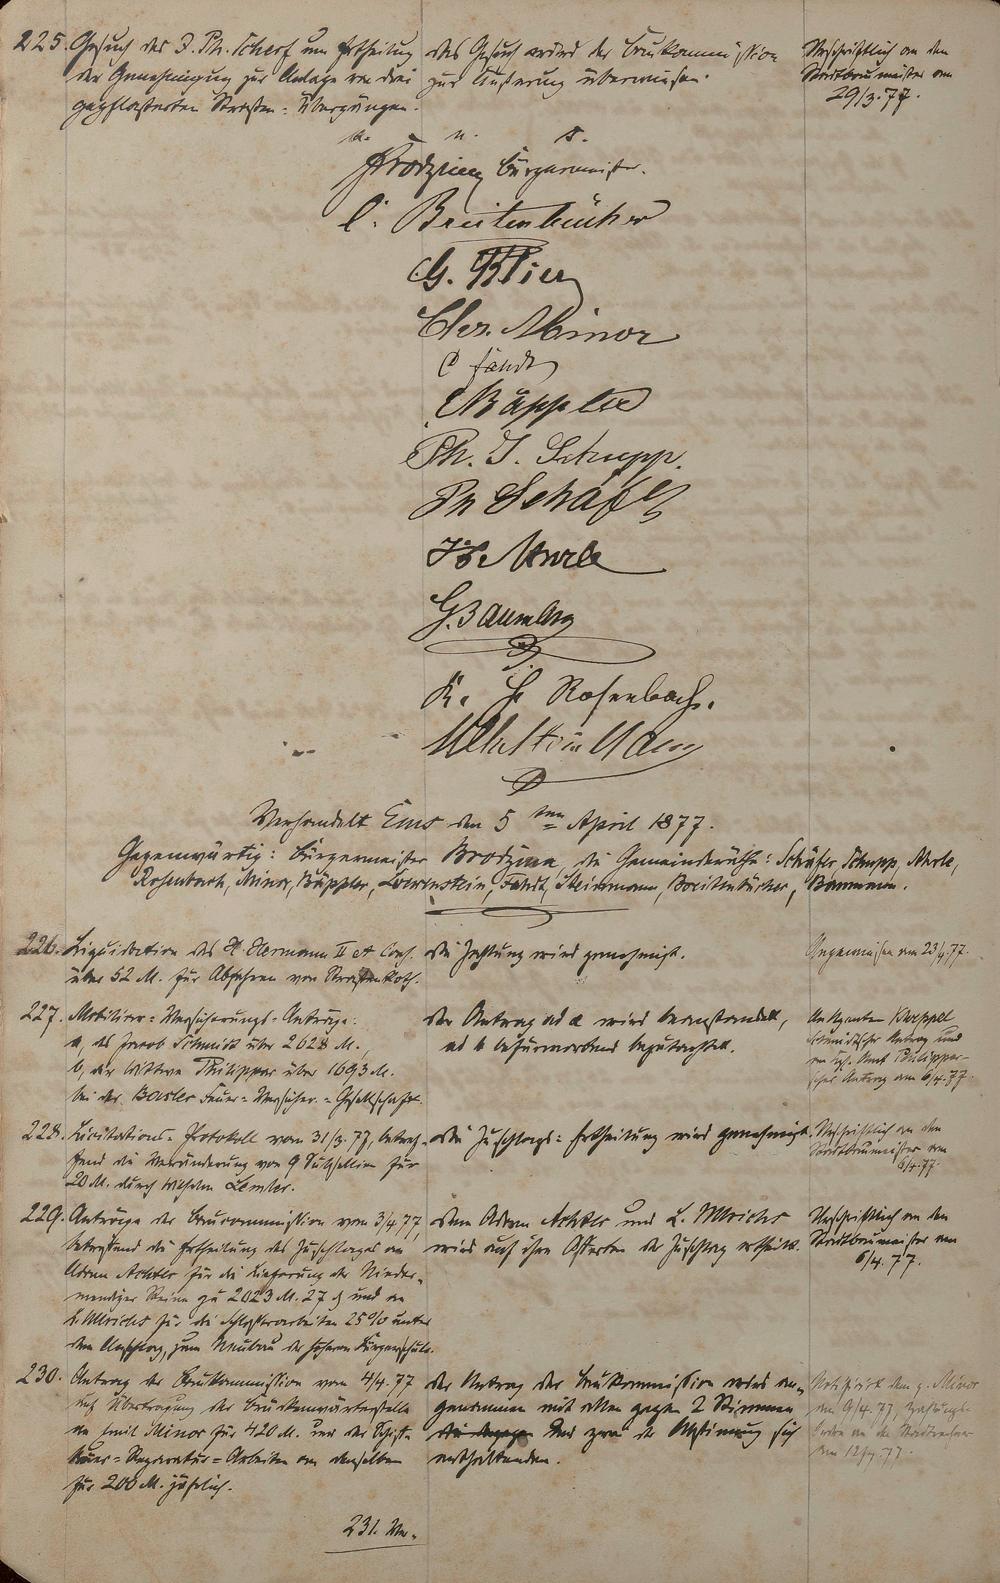 225. Gesuch des J. Ph. Scherf um Ertheilung
der Genehmigung zur Anlage von drei
gepflasterten Strassen-Übergängen.
das Gesuch wird der Baukommission
zur Äußerung überwiesen.
Urschriftlich an den
Stadtbaumeister am
29/3.77.
v. u. s.
Brodzina Bürgermeister.
C. Breitenbücher
G. Flier
Chr. Minor
C Fandt
Bäppler
Ph. J. Schupp.
Ph Schäfer
Merle
G. Baumann
K. H. Rosenbach.
Verhandelt Ems den 5ten April 1877.
Gegenwärtig: Bürgermeister Brodzina, die Gemeinderäthe: Schäfer, Schupp, Merle,
Rosenbach, Minor, Bäppler, Loewenstein, Fandt, Breitenbücher, Baumann.
226. Liquidation des H. Hermann II et Cons.
über 52 M. für Abfahren von Strassenkoth.
die Zahlung wird genehmigt.
Angewiesen am 23/4 77.
227. Mobiliar-Versicherungs-Anträge:
a, des Jacob Schmidt über 2628 M.,
b, der Wittwe Philippar über 1693 M.
bei der Basler Feuer-Versicher.-Gesellschaft.
der Antrag ad a wird beanstandet,
ad b befürwortend begutachtet.
An Agenten Knappel
Schmidt'scher Antrag und
an Kgl. Amt Philippar-
scher Antrag am 6/4.77.
228. Licitations-Protokoll vom 31/3.77, betref-
fend die Veränderung von 9 Subsellien für
20 M. durch Wilhelm Lemler.
Die Zuschlags-Ertheilung wird genehmigt.
Urschriftlich an den
Stadtbaumeister am
6/4.77.
229. Anträge der Baucommission vom 3/4 77,
betreffend die Ertheilung des Zuschlages an
Adam Achtler für die Lieferung der Nieder-
mendiger Steine zu 2023 M. 27 ₰ und an
L. Ulrichs für die Schlosserarbeiten 25% unter
dem Anschlag, zum Neubau der höheren Bürgerschule.
dem Adam Achtler und L. Ulrichs
wird auf ihre Offerten der Zuschlag ertheilt.
Urschriftlich an den
Stadtbaumeister am
6/4. 77.
230. Antrag der Baukommission vom 4/4.77
auf Übertragung der Brückenwärterstelle
an Emil Minor für 420 M. und der Schiff-
Reparatur-Arbeiten an derselben
für 200 M. jährlich.
Der Antrag der Baukommission wird an-
genommen mit allen gegen 2 Stimmen
und zwei der Abstimmung sich
enthaltenden.
Notifizirt dem p. Minor
am 9/4.77,
an die Stadtrechner
am 12/4.77.
231. Ver-